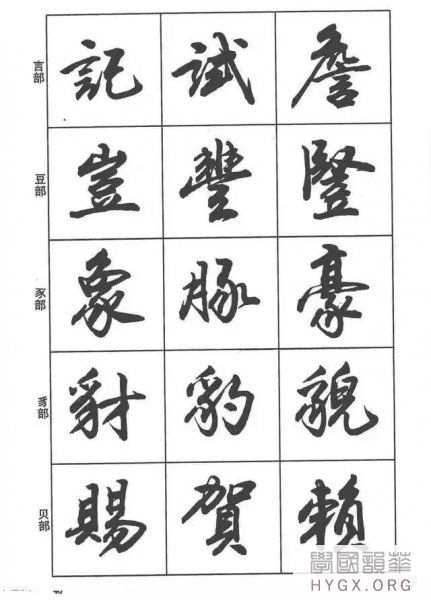 言部 記 試 詹
豆部 豈 豐 豎
豕部 象 豚 豪
豸部 豺 豹 貌
贝部 賜 賀 賴
華韻國學
HYGX.ORG